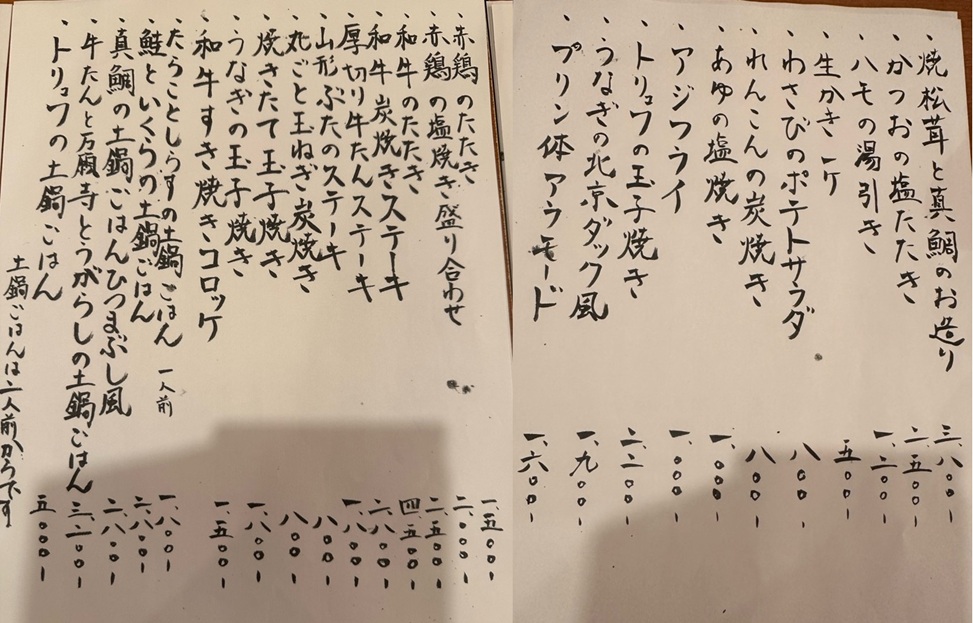 ・焼松茸と真鯛のお造り 三、八〇〇-
・かつおの塩たたき 二、五〇〇-
・ハモの湯引き 一、二〇〇-
・生かき 一ケ 五〇〇-
・わさびのポテトサラダ 八〇〇-
・れんこんの炭焼き 八〇〇-
・あゆの塩焼き 一、〇〇〇-
・アジフライ 一、〇〇〇-
・トリュフの玉子焼き 二、二〇〇-
・うなぎの北京ダック風 一、九〇〇-
・プリン体アラモード 一、六〇〇-
・赤鶏のたたき 一、五〇〇-
・赤鶏の塩焼き盛り合わせ 二、〇〇〇-
・和牛のたたき 二、五〇〇-
・和牛炭焼きステーキ 四、五〇〇-
・厚切り牛たんステーキ 二、八〇〇-
・山形ぶたのステーキ 一、八〇〇-
・丸ごと玉ねぎ炭焼き 八〇〇-
・焼きたて玉子焼き 八〇〇-
・うなぎの玉子焼き 一、八〇〇-
・和牛すき焼きコロッケ 一、五〇〇-
・たらことしらすの土鍋ごはん 一人前 一、八〇〇-
・鮭といくらの土鍋ごはん 二、八〇〇-
・真鯛の土鍋ごはんひつまぶし風 二、八〇〇-
・牛たんと万願寺とうがらしの土鍋ごはん 三、二〇〇-
・トリュフの土鍋ごはん 五、〇〇〇-
土鍋ごはんは二人前からです